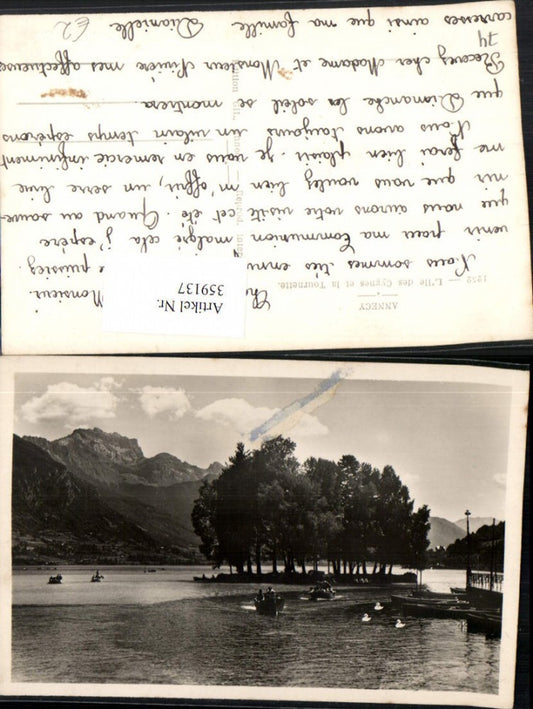 ANNECY
1232 — L'Ile des Cygnes et la Tournette.
Artikel Nr.
359137
Monsieur.
Nous sommes très ennu
e puissiez
venir pour ma Communion malgré cela j'espère
que nous aurons votre visite cet été. Quand au souve-
nir que vous voulez bien m'offrir, un serre livre
me ferai bien plaisir. Je vous en remercie infiniment
Nous avons toujours un vilain temps espérons
que Dimanche le soleil se montrera.
Recevez cher Madame et Monsieur Rivière mes affectueuses
caresses ainsi que ma famille.
74
€2